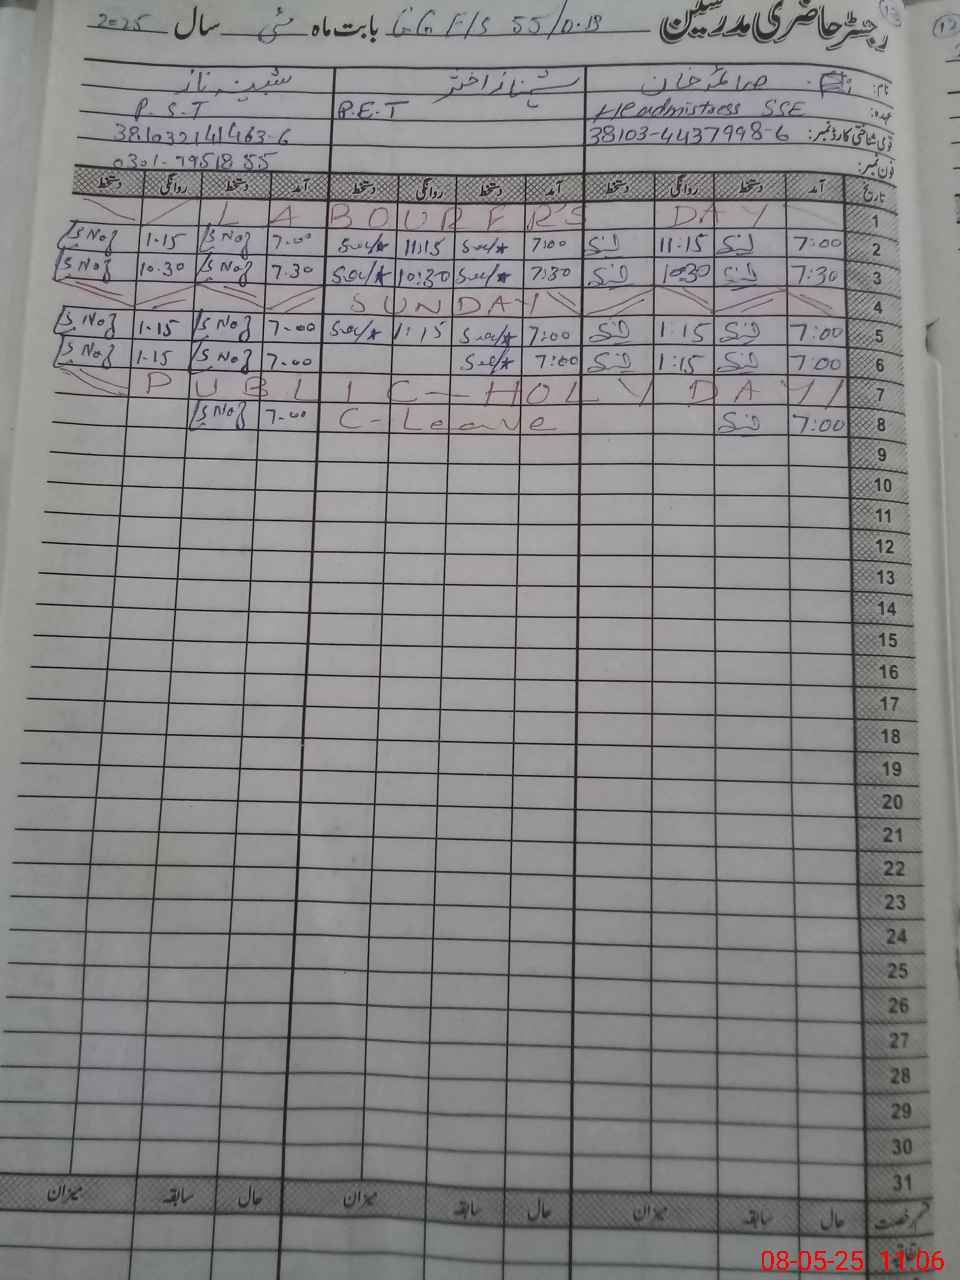 رجسٹر حاضری مدرسین GGE/S 55/D.B بابت ماہ مئی سال 2025
نام: خان شہناز اختر شبینہ ناز
عہدہ: Headmistress SSE P.E.T P.S.T
قومی شناختی کارڈ نمبر: 38103-4437998-6 381032141463-6
فون نمبر: 0301-7951855
تاریخ آمد دستخط روانگی دستخط آمد دستخط روانگی دستخط آمد دستخط روانگی دستخط
1 LABOURER'S DAY
2 7:00 11:15 7:00 11:15 7.00 1.15
3 7:30 10:30 7:30 10:30 7.30 10.30
4 SUNDAY
5 7:00 1:15 7:00 1:15 7.00 1.15
6 7:00 1:15 7:00 7.00 1.15
7 PUBLIC-HOLY DAY
8 7:00 C-Leave 7.00
9
10
11
12
13
14
15
16
17
18
19
20
21
22
23
24
25
26
27
28
29
30
31
قسم رخصت حال سابقہ میزان حال سابقہ میزان حال سابقہ میزان
08-05-25 11:06